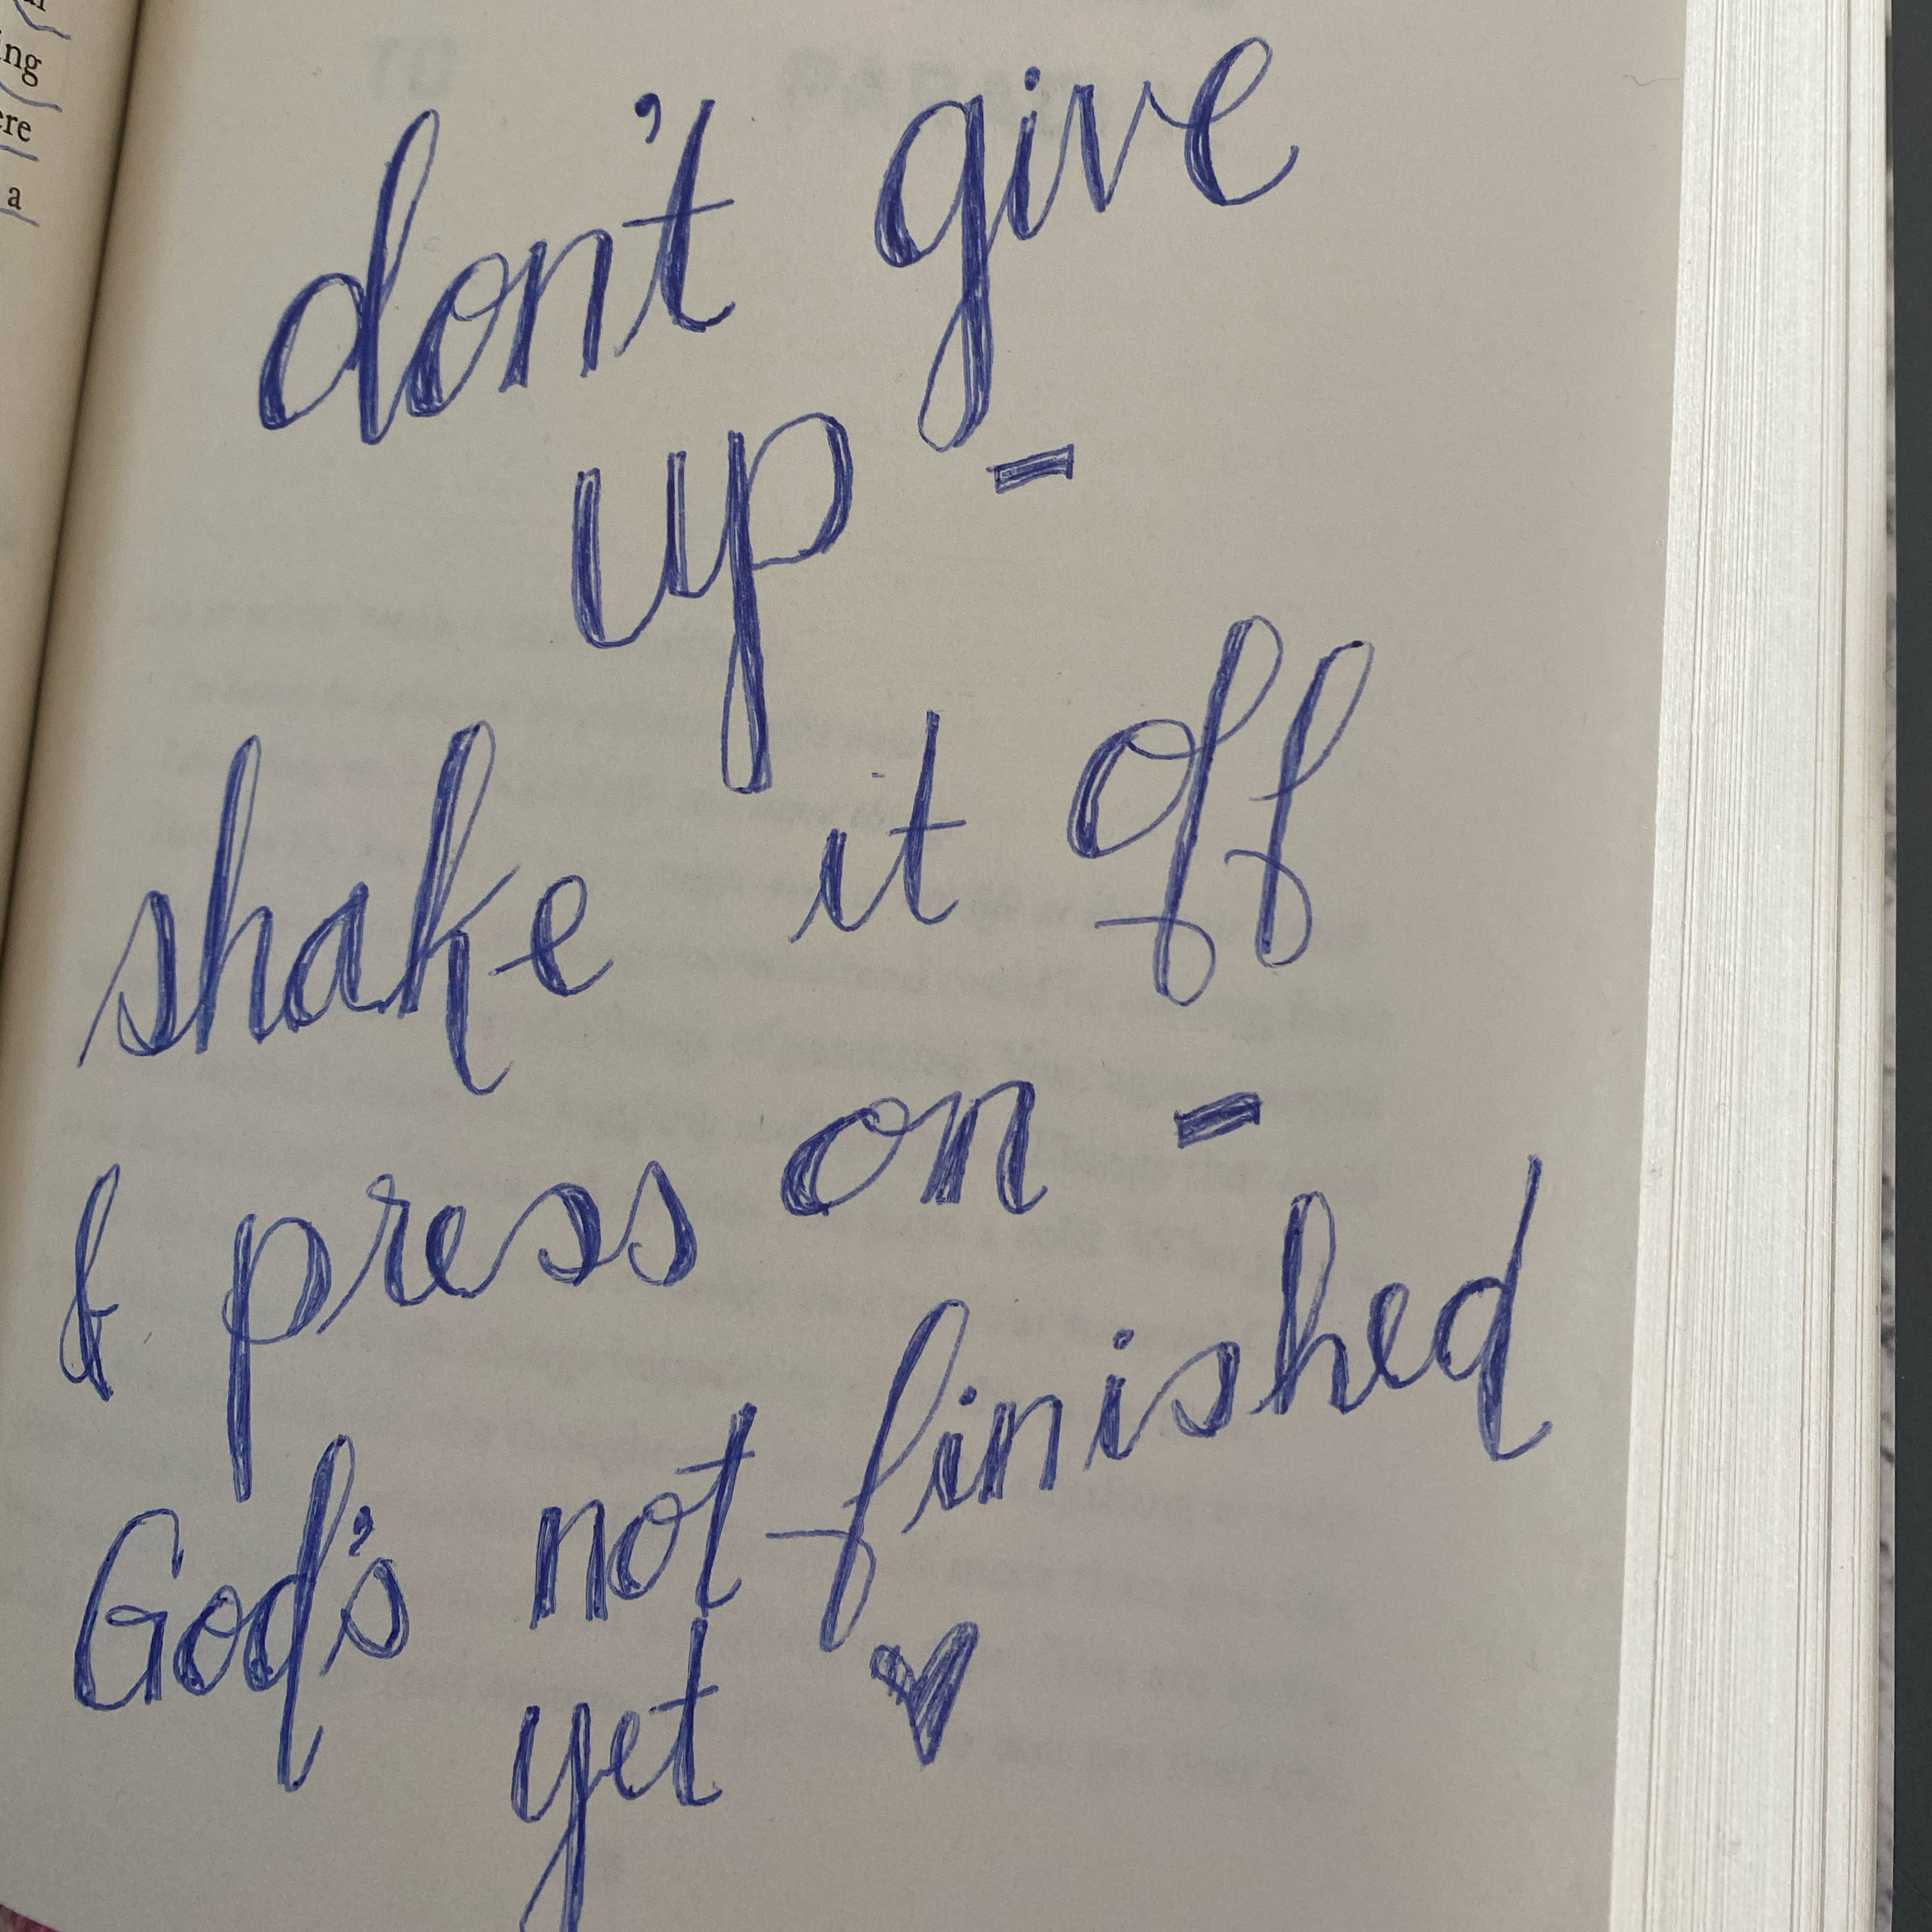 ing
ere
a
don't give
up -
shake it off
& press on -
God's not finished
yet